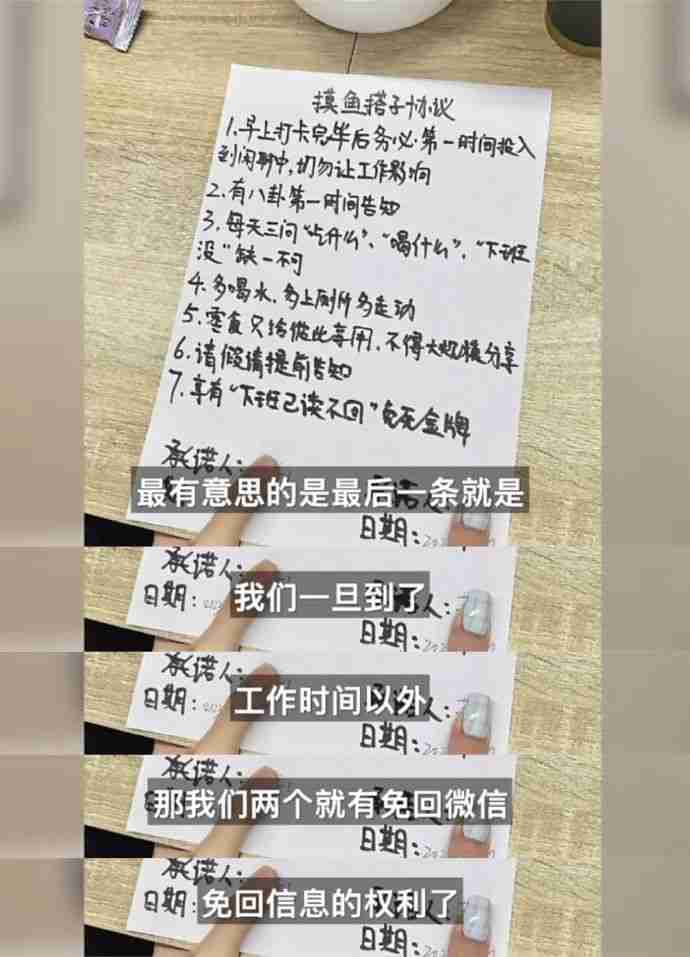 摸鱼搭子协议
1.早上打卡完毕后务必第一时间投入
到闲聊中,切勿让工作影响
2.有八卦第一时间告知
3.每天三问"吃什么"、"喝什么"、"下班
没"缺一不可
4.多喝水,多上厕所多走动
5.零食只给彼此享用,不得大规模分享
6.请假请提前告知
7.享有"下班已读不回"免死金牌
承诺人:
最有意思的是最后一条就是
日期:
承诺人:
我们一旦到了
日期:
人:
日期:
承诺人:
工作时间以外
日期:
人:
日期:
承诺人
那我们两个就有免回微信
日期:
承诺人:
免回信息的权利了
日期:
人:
日期: